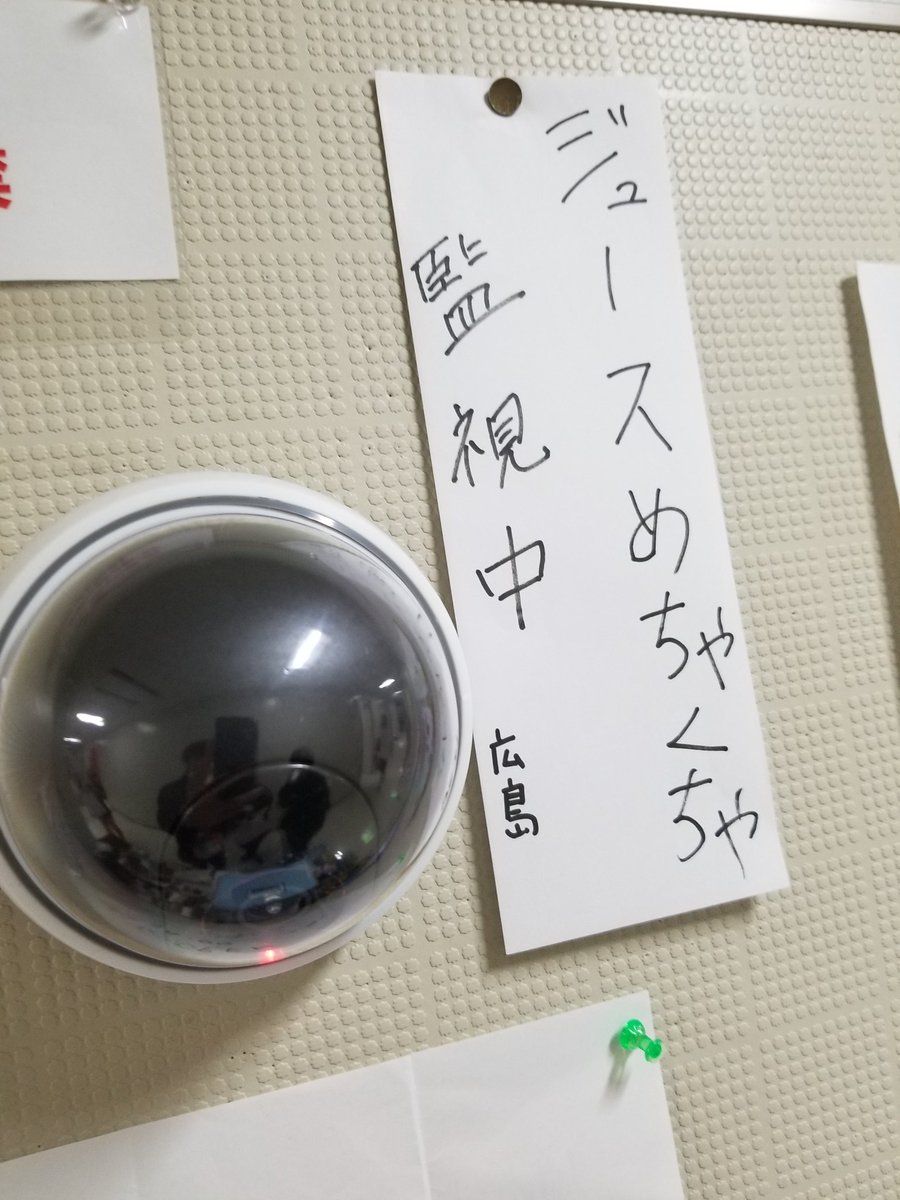 ジュースめちゃくちゃ
監視中 広島